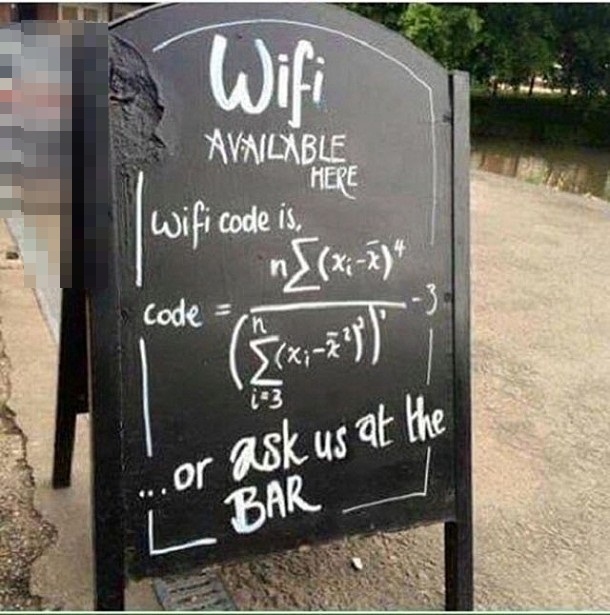 Wifi
AVAILABLE
HERE
Wifi code is,
n∑(xᵢ-x̄)⁴
code = ─────── -3
(∑ⁿᵢ₌₃(xᵢ-x̄²)²)'
...or ask us at the
BAR